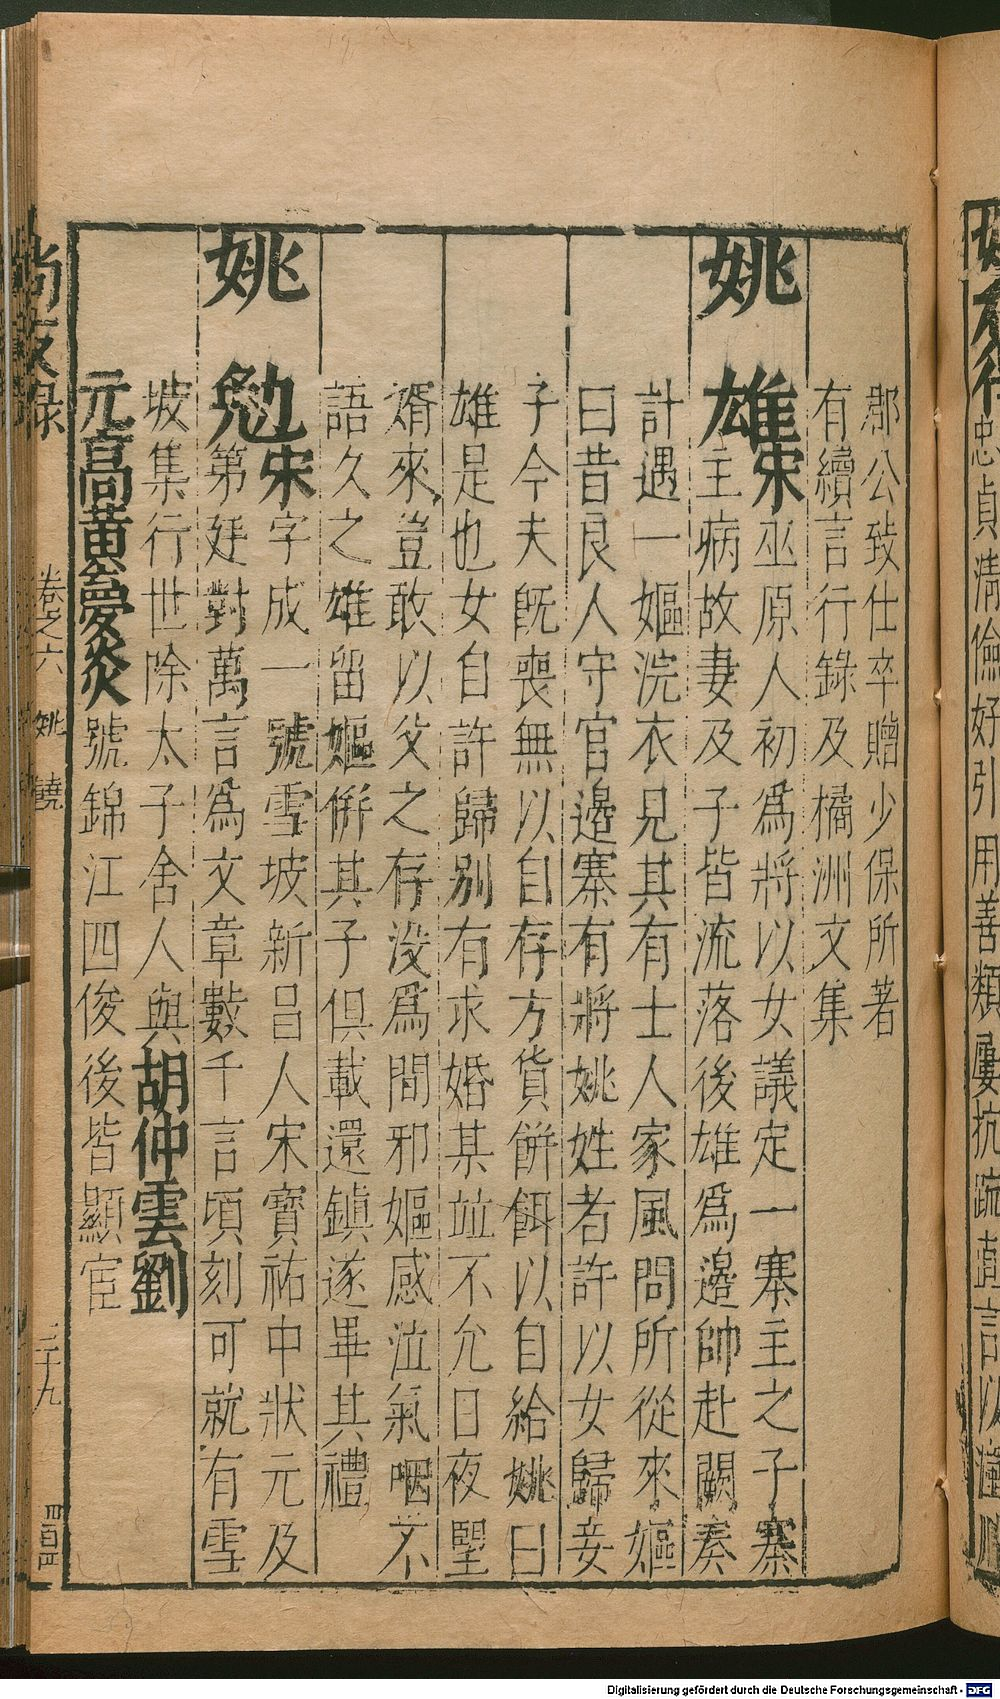 郡公致仕卒贈少保所著
有續言行錄及橘洲文集
姚雄宋巫原人初爲將以女議定一寨主之子寨
主病故妻及子皆流落後雄爲邊帥赴闕奏
計遇一嫗浣衣見其有士人家風問所從來嫗
曰昔良人守官邊寨有將姚姓者許以女歸妾
子今夫旣喪無以自存方貨餅餌以自給姚曰
雄是也女自許歸别有求婚某竝不允日夜堅
壻來豈敢以父之存沒爲間邪嫗感泣氣咽不
語久之雄留嫗併其子俱載還鎮遂畢其禮
姚勉宋字成一號雪坡新昌人宋寶祐中狀元及
第廷對萬言爲文章數千言頃刻可就有雪
坡集行世除太子舍人與胡仲雲劉
元高黄夢炎號錦江四俊後皆顯宦
尚友錄
卷之六
姚
二十九
忠貞清儉好引用善類屢抗疏直言以
Digitalisierung gefördert durch die Deutsche Forschungsgemeinschaft - DFG